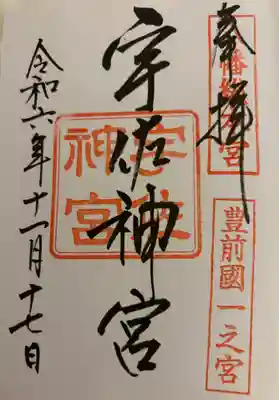 奉拝
八幡総本宮
豊前國一之宮
宇佐神宮
宇佐神宮
令和六年十一月十七日